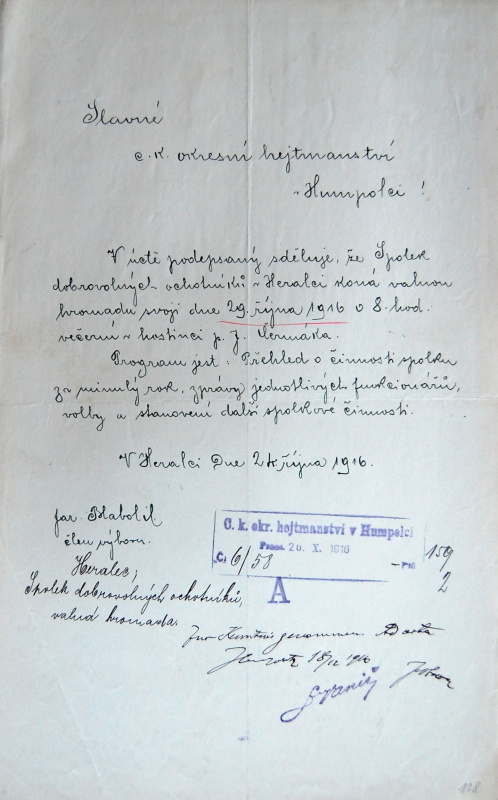 Slavné
c. k. okresní hejtmanství
v Humpolci!
V úctě podepsaný sděluje, že Spolek
dobrovolných ochotníků v Heralci koná valnou
hromadu svoji dne 29. října 1916 o 8. hod.
večerní v hostinci p. J. Čermáka.
Program jest: Přehled o činnosti spolku
za minulý rok, zprávy jednotlivých funkcionářů,
volby a stanovení další spolkové činnosti.
V Heralci Dne 24 října 1916.
Jar.
člen výboru.
Heralec,
Spolek dobrovolných ochotníků,
valná hromada.
C. k. okr. hejtmanství v Humpolci
Praes. 26. X. 1916
Č. 6/58
159
2
A
Zur Kenntnis genommen
1916
128